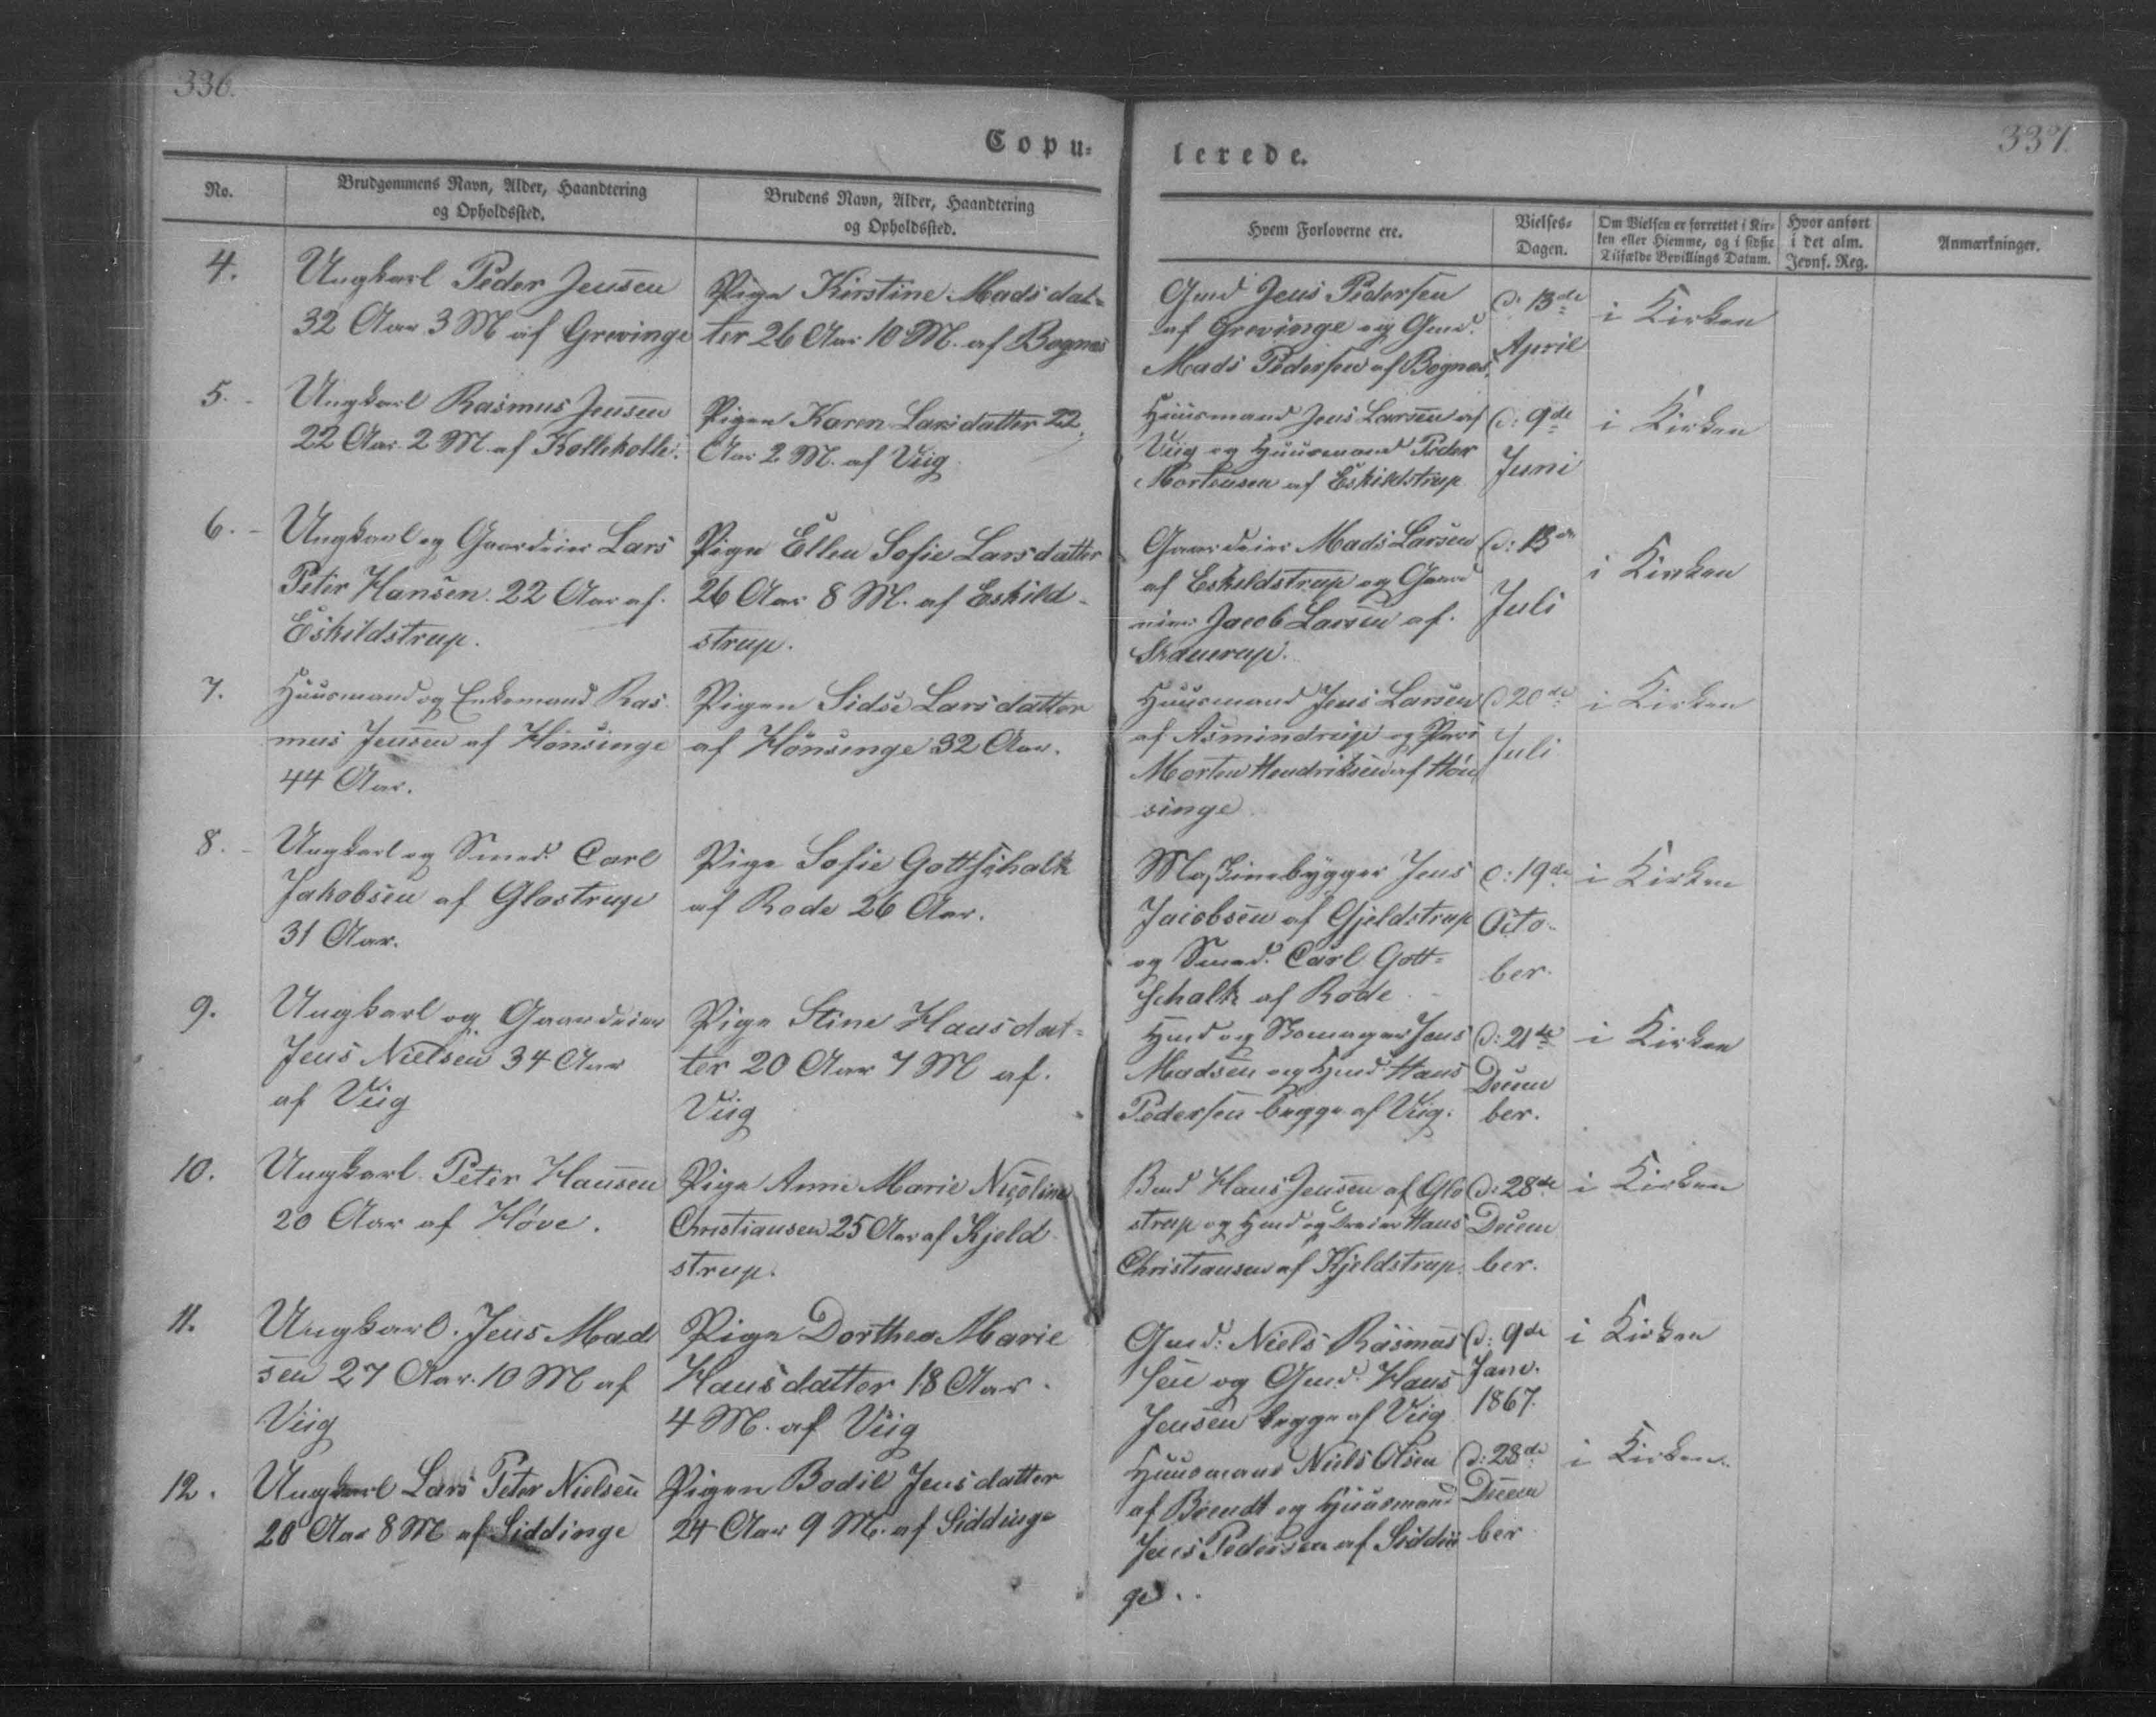 336.
337.
Copu-
lerede.
No.
Brudgommens Navn, Alder, Haandtering
og Opholdssted.
Brudens Navn, Alder, Haandtering
og Opholdssted.
Hvem Forloverne ere.
Vielses-
Dagen.
Om Vielsen er forrettet i Kir-
ken eller Hiemme, og i sidste
Tilfælde Bevillings Datum.
Hvor anført
i det alm.
Jevnf. Reg.
Anmærkninger.
4.
Ungkarl Peder Jensen
32 Aar 3 M af Grevinge
Pige Kirstine Madsdat-
ter 26 Aar 10 M. af Bognæs
Gmd Jens Pedersen
af Grevinge og Gmd.
Mads Pedersen af Bognæs.
d: 13de
April
i Kirken
5.
Ungkarl Rasmus Jensen
22 Aar 2 M. af Kollekolle.
Pigen Karen Larsdatter 22
Aar 2 M. af Viig
Huusmand Jens Larsen af
Viig og Huusmand Peder
Mortensen af Eskildstrup
d: 9de
Juni
i Kirken
6.
Ungkarl og Gaardeier Lars
Peter Hansen. 22 Aar af.
Eskildstrup.
Pige Ellen Sofie Larsdatter
26 Aar 8 M. af Eskild-
strup.
Gaardeier Mads Larsen
af Eskildstrup og Gaard
eier Jacob Larsen af.
d: 13de
Juli
i Kirken
7.
Huusmand og Enkemand Ras
mus Jensen af Hönsinge
44 Aar.
Pigen Sidse Larsdatter
af Hönsinge 32 Aar.
Huusmand Jens Larsen
af Asmindrup og
Morten Hendriksen af Hön
singe
d 20de
Juli
i Kirken
8.
Ungkarl og Smed. Carl
Jakobsen af Glostrup
31 Aar.
Pige Sofie Gottschalk
af Rode 26 Aar.
Maskinebygger Jens
Jacobsen af Gjeldstrup
og Smed. Carl Gott-
schalk af Rode
d: 19de
Octo-
ber.
i Kirken
9.
Ungkarl og Gaardeier
Jens Nielsen 34 Aar
af Viig
Pige Stine Hansdat-
ter 20 Aar 7 M af.
Viig
Hmd og Skomager Jens
Madsen og Hmd Hans
Pedersen begge af Viig.
d: 21de
Decem
ber.
i Kirken
10.
Ungkarl Peter Hansen
20 Aar af Høve.
Pige Anne Marie Nicoline
Christiansen 25 Aar af Kjeld
strup.
Bmd Hans Jensen af Glo
strup og Hmd og Hans
Christiansen af Kjeldstrup.
d: 28de
Decem
ber.
i Kirken
11.
Ungkarl. Jens Mad
sen 27 Aar. 10 M af
Viig
Pige Dorthea Marie
Hansdatter 18 Aar.
4 M. af Viig
Gmd. Niels Rasmus
sen og Gmd. Hans
Jensen begge af Viig
d: 9de
Janv.
1867.
i Kirken
12.
Ungkarl Lars Peter Nielsen
28 Aar 8 M af Siddinge
Pigen Bodil Jensdatter
24 Aar 9 M. af Siddinge
Huusmand Niels Olsen
af Brendt og Huusmand
Jens Pedersen af Siddin
ge..
d: 28de
Decem
ber
i Kirken.